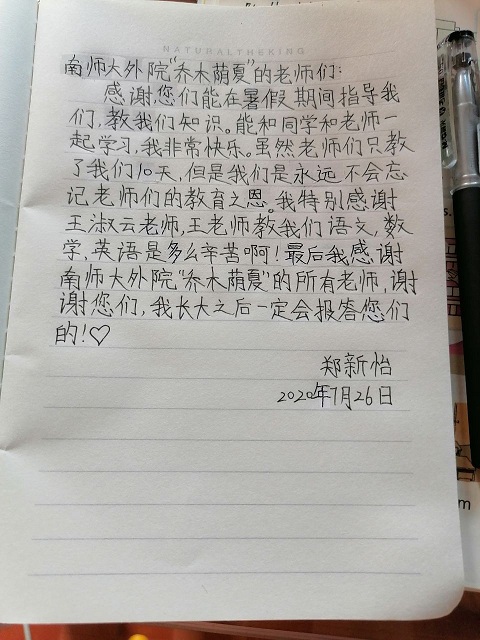 NATURALTHEKING
南师大外院“乔木荫夏”的老师们:
感谢您们能在暑假期间指导我
们,教我们知识。能和同学和老师一
起学习,我非常快乐。虽然老师们只教
了我们10天,但是我们是永远不会忘
记老师们的教育之恩。我特别感谢
王淑云老师,王老师教我们语文,数
学,英语是多么辛苦啊!最后我感谢
南师大外院“乔木荫夏”的所有老师,谢
谢您们,我长大之后一定会报答您们
的!♡
郑新怡
2020年7月26日